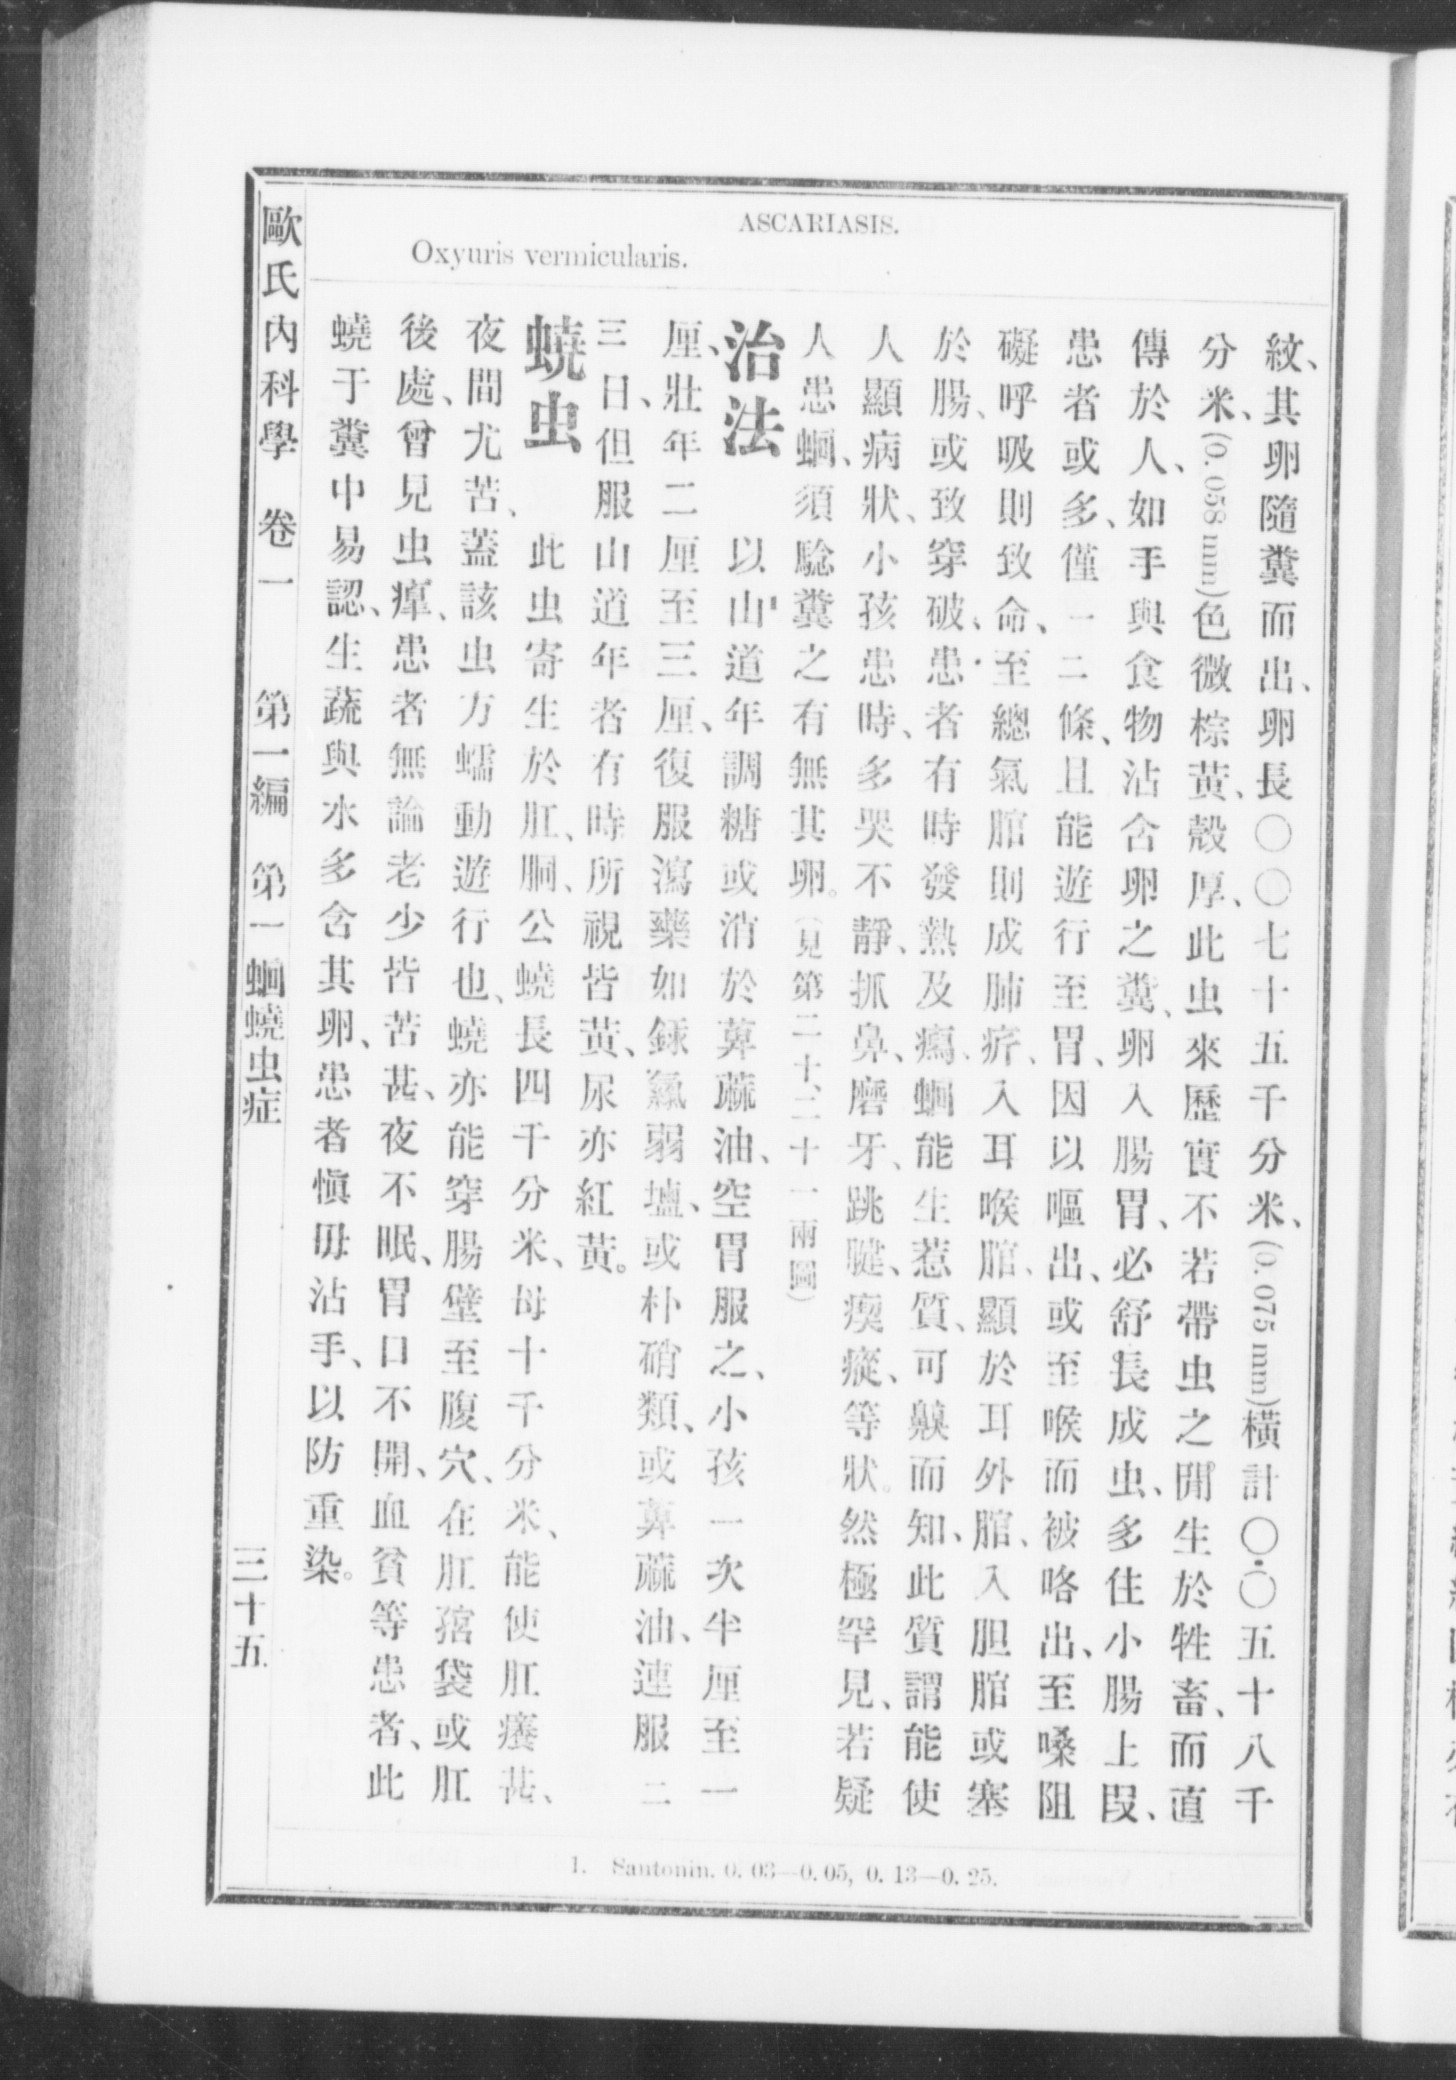 ASCARIASIS.
Oxyuris vermicularis.
紋、其卵隨糞而出、卵長〇〇七十五千分米、(0.075 mm)橫計〇·〇五十八千
分米、(0.058 mm)色微棕黃、殼厚、此虫來歷實不若帶虫之閒生於牲畜、而直
傳於人、如手與食物沾含卵之糞、卵入腸胃、必舒長成虫、多住小腸上段、
患者或多、僅一二條、且能遊行至胃、因以嘔出、或至喉而被咯出、至嗓阻
礙呼吸則致命、至總氣䐃則成肺疔、入耳喉䐃、顯於耳外䐃、入胆䐃或塞
於腸、或致穿破、患者有時發熱及瘋、蛔能生惹質、可齅而知、此質謂能使
人顯病狀、小孩患時、多哭不靜、抓鼻、磨牙、跳睫、瘈瘲、等狀。然極罕見、若疑
人患蛔、須騐糞之有無其卵。(見第二十、二十一兩圖)
治法 以山¹道年調糖或消於萆蔴油、空胃服之、小孩一次半厘至一
厘、壯年二厘至三厘、復服瀉藥如銾氯弱壚、或朴硝類、或萆蔴油、連服二
三日、但服山道年者有時所視皆黃、尿亦紅黃。
蟯虫 此虫寄生於肛、胴、公蟯長四千分米、母十千分米、能使肛癢甚、
夜間尤苦、蓋該虫方蠕動遊行也、蟯亦能穿腸壁至腹穴、在肛㝛袋或肛
後處、曾見虫㿈、患者無論老少皆苦甚、夜不眠、胃口不開、血貧等患者、此
蟯于糞中易認、生蔬與水多含其卵、患者愼毋沾手、以防重染。
1. Santonin. 0.03—0.05, 0.13—0.25.
歐氏內科學 卷一 第一編 第一 蛔蟯虫症 三十五